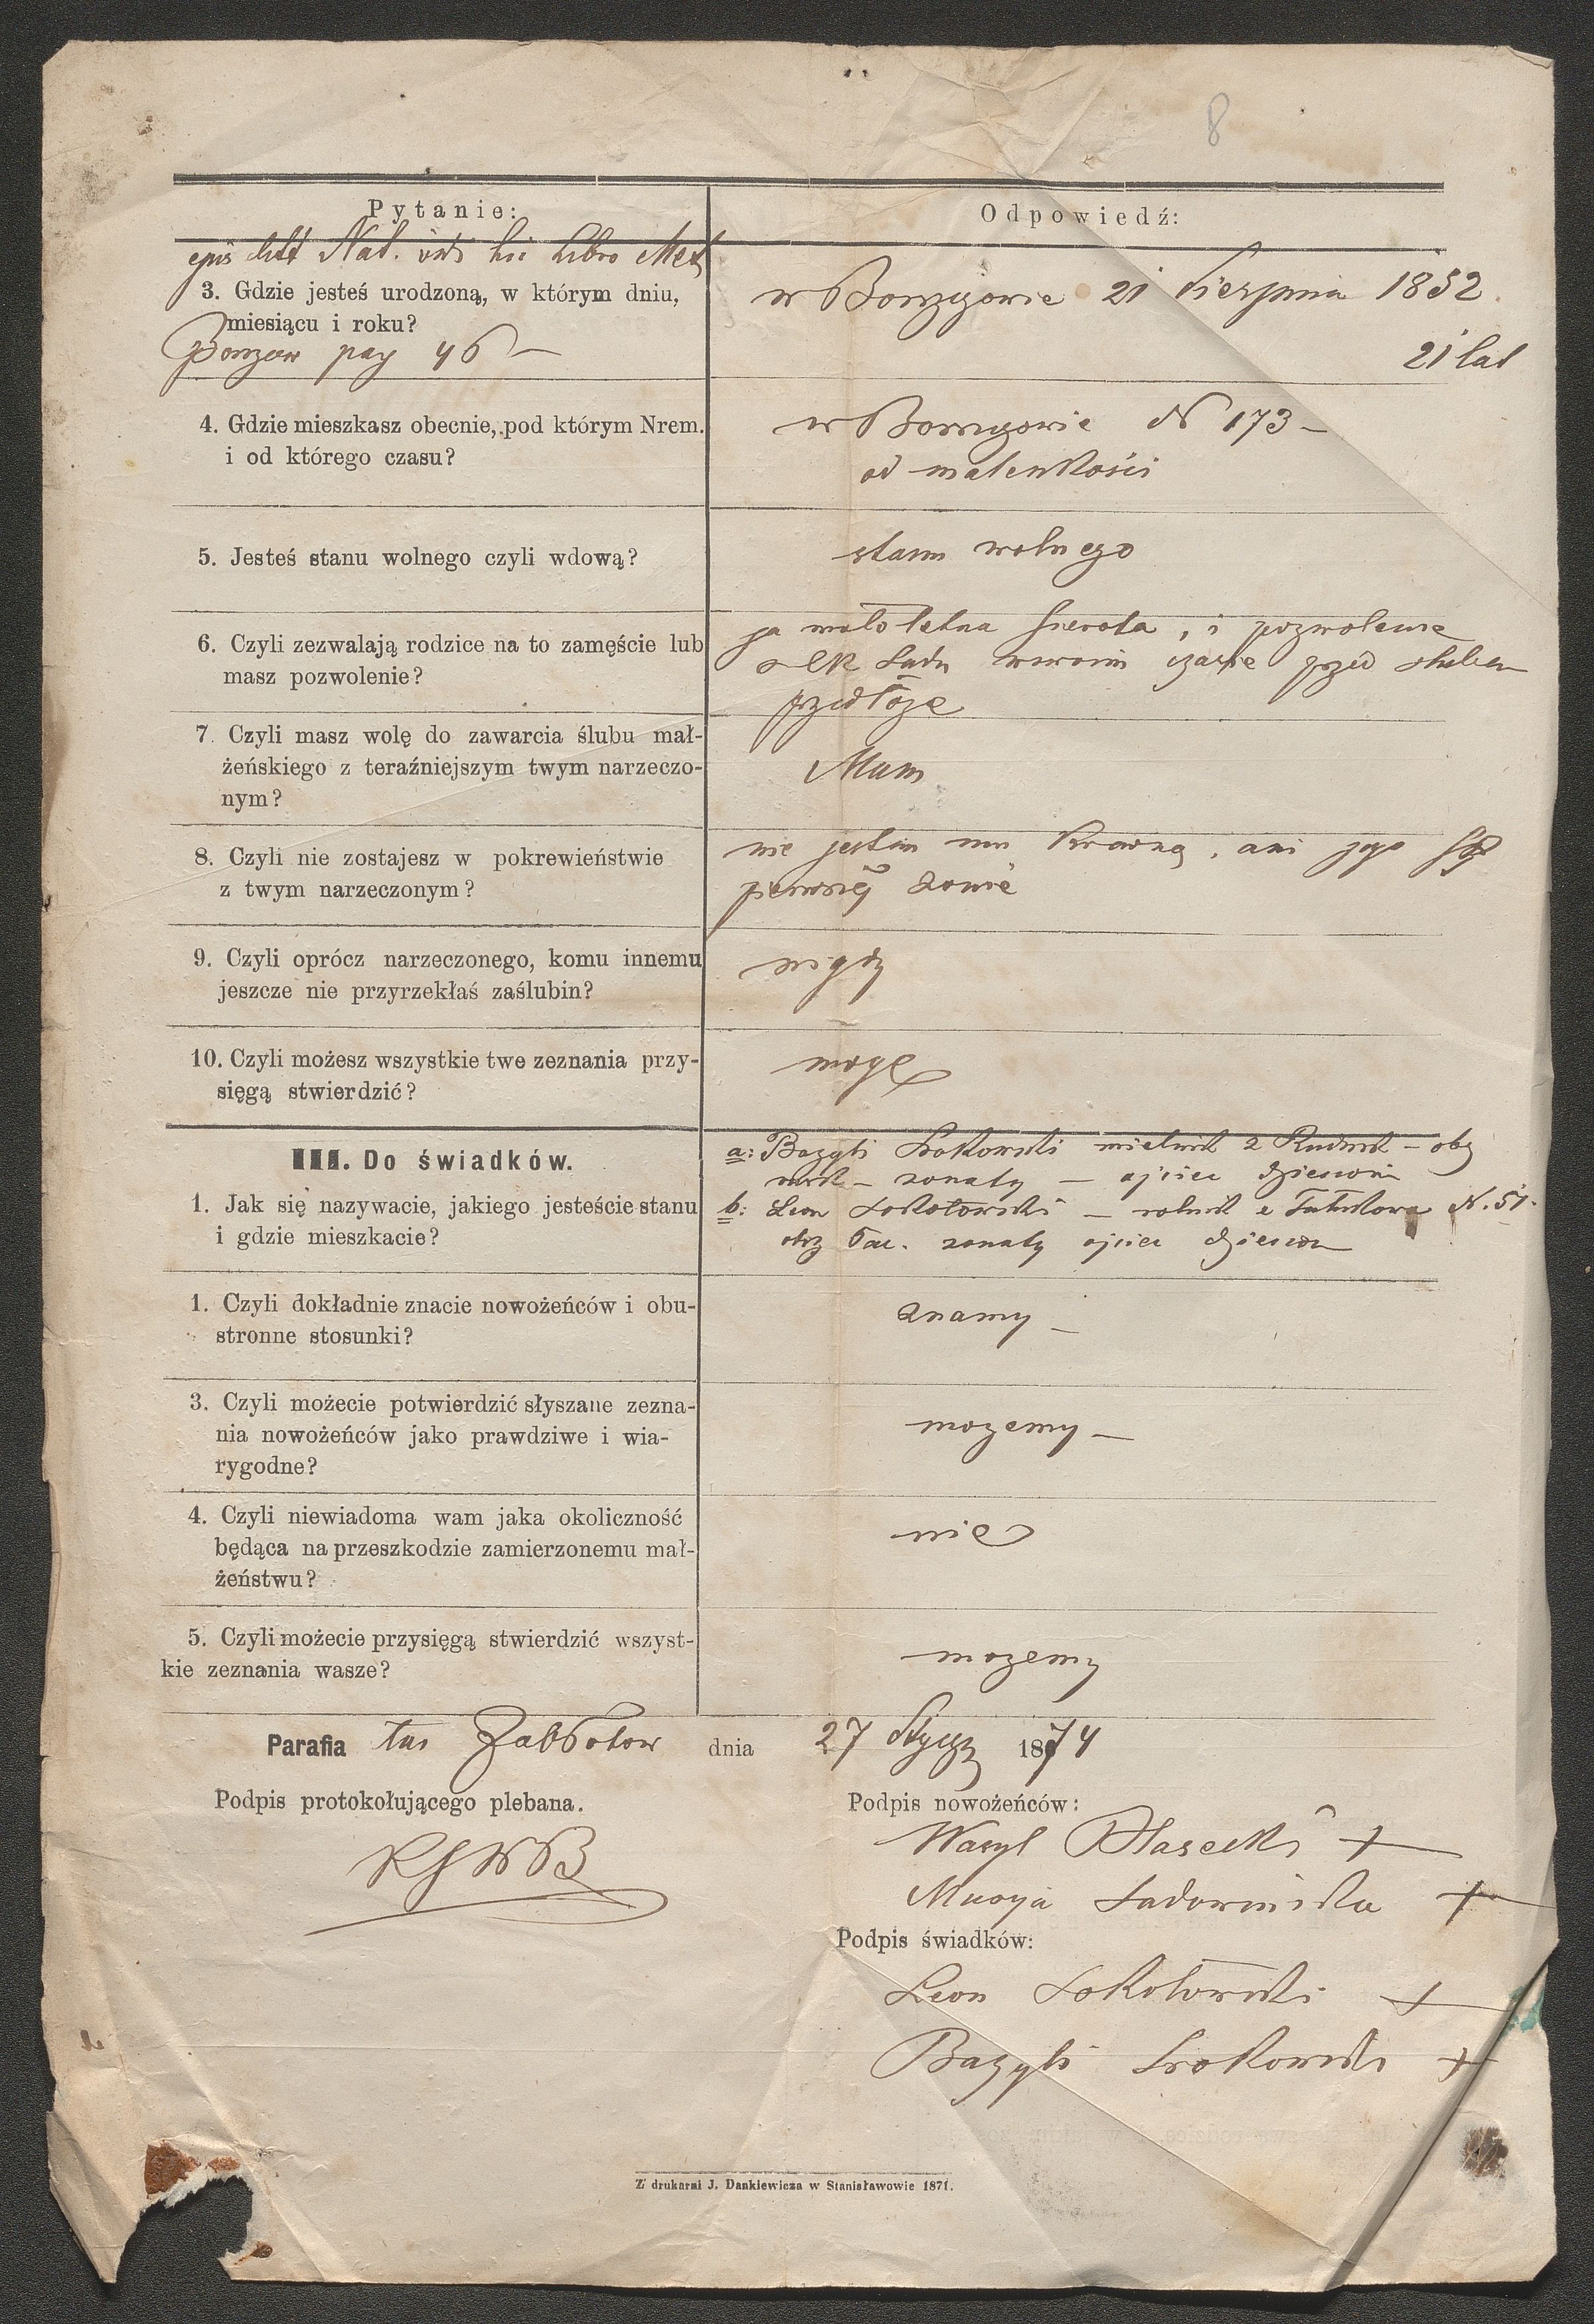 8
Pytanie:
Odpowiedź:
Nat. hic Libro
3. Gdzie jesteś urodzoną, w którym dniu,
miesiącu i roku?
pag 46 –
21 Sierpnia 1852.
21 lat
4. Gdzie mieszkasz obecnie, pod którym Nrem.
i od którego czasu?
N 173 –
od maleńkości
5. Jesteś stanu wolnego czyli wdową?
stanu wolnego
6. Czyli zezwalają rodzice na to zamęście lub
masz pozwolenie?
ja małoletna sierota, i pozwolenie
Sądu w swoim czasie przed ślubem
przedłożę
7. Czyli masz wolę do zawarcia ślubu mał-
żeńskiego z teraźniejszym twym narzeczo-
nym?
Mam
8. Czyli nie zostajesz w pokrewieństwie
z twym narzeczonym?
nie jestem mu krewną, ani jego
pierwszej żonie
9. Czyli oprócz narzeczonego, komu innemu
jeszcze nie przyrzekłaś zaślubin?
nigdy
10. Czyli możesz wszystkie twe zeznania przy-
sięgą stwierdzić?
mogę
III. Do świadków.
1. Jak się nazywacie, jakiego jesteście stanu
i gdzie mieszkacie?
a: Bazyli mielnik z – obrz
– żonaty – ojciec dzieciom
b: Leon Sokołowski – rolnik z N. 51.
obrz łac. żonaty ojciec dzieciom
1. Czyli dokładnie znacie nowożeńców i obu-
stronne stosunki?
znamy –
3. Czyli możecie potwierdzić słyszane zezna-
nia nowożeńców jako prawdziwe i wia-
rygodne?
mozemy –
4. Czyli niewiadoma wam jaka okoliczność
będąca na przeszkodzie zamierzonemu mał-
żeństwu?
nie
5. Czyli możecie przysięgą stwierdzić wszyst-
kie zeznania wasze?
mozemy
Parafia Zabłotow dnia 27 Stycz 1874
Podpis protokołującego plebana.
Podpis nowożeńców:
Wasyl +
Marya Sadowinska +
Podpis świadków:
Leon Sokołowski +
Bazyli +
Z drukarni J. Dankiewicza w Stanisławowie 1871.